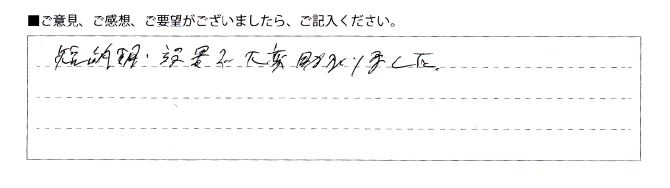 ■ご意見、ご感想、ご要望がございましたら、ご記入ください。
短納期・設置で大変助かりました。